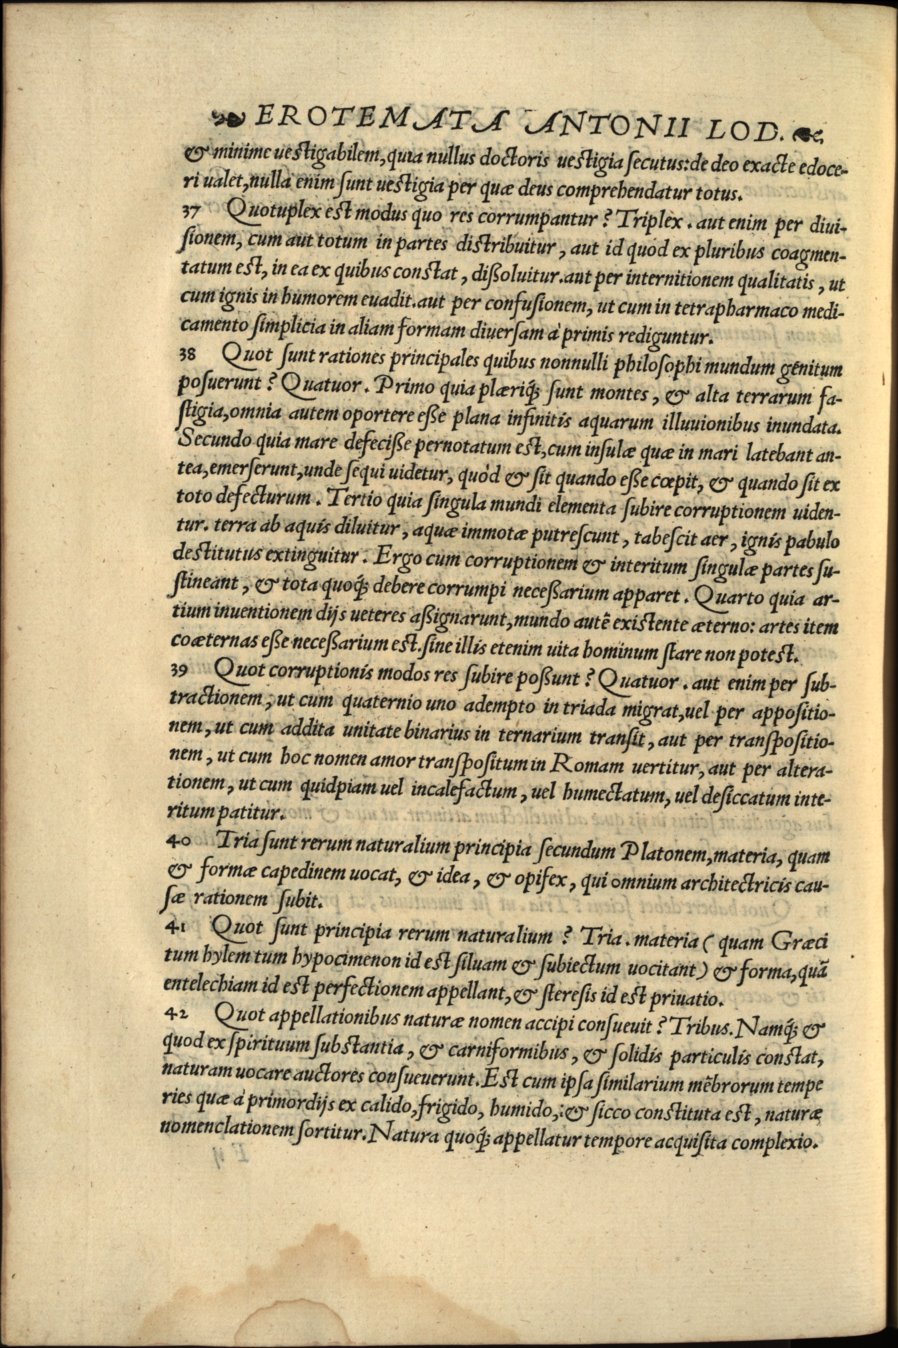 EROTEMATA ANTONII LOD.
& minime uestigabilem, quia nullus doctoris uestigia secutus: de deo exacte edoce-
ri ualet, nulla enim sunt uestigia per quæ deus comprehendatur totus.
37 Quotuplex est modus quo res corrumpantur? Triplex. aut enim per diui-
sionem, cum aut totum in partes distribuitur, aut id quod ex pluribus coagmen-
tatum est, in ea ex quibus constat, dißoluitur. aut per internitionem qualitatis, ut
cum ignis in humorem euadit. aut per confusionem, ut cum in tetrapharmaco medi-
camento simplicia in aliam formam diuersam à primis rediguntur.
38 Quot sunt rationes principales quibus nonnulli philosophi mundum genitum
posuerunt? Quatuor. Primo quia plæriq; sunt montes, & alta terrarum fa-
stigia, omnia autem oportere eße plana infinitis aquarum illuuionibus inundata.
Secundo quia mare defeciße pernotatum est, cum insulæ quæ in mari latebant an-
tea, emerserunt, unde sequi uidetur, quòd & sit quando eße cœpit, & quando sit ex
toto defecturum. Tertio quia singula mundi elementa subire corruptionem uiden-
tur. terra ab aquis diluitur, aquæ immotæ putrescunt, tabescit aer, ignis pabulo
destitutus extinguitur. Ergo cum corruptionem & interitum singulæ partes su-
stineant, & tota quoq; debere corrumpi neceßarium apparet. Quarto quia ar-
tium inuentionem dijs ueteres aßignarunt, mundo autē existente æterno: artes item
coæternas eße neceßarium est. sine illis etenim uita hominum stare non potest.
39 Quot corruptionis modos res subire poßunt? Quatuor. aut enim per sub-
tractionem, ut cum quaternio uno adempto in triada migrat, uel per appositio-
nem, ut cum addita unitate binarius in ternarium transit, aut per transpositio-
nem, ut cum hoc nomen amor transpositum in Romam uertitur, aut per altera-
tionem, ut cum quidpiam uel incalefactum, uel humectatum, uel desiccatum inte-
ritum patitur.
40 Tria sunt rerum naturalium principia secundum Platonem, materia, quam
& formæ capedinem uocat, & idea, & opifex, qui omnium architectricis cau-
sæ rationem subit.
41 Quot sunt principia rerum naturalium? Tria. materia (quam Græci
tum hylem tum hypocimenon id est siluam & subiectum uocitant) & forma, quā
entelechiam id est perfectionem appellant, & steresis id est priuatio.
42 Quot appellationibus naturæ nomen accipi consueuit? Tribus. Namq; &
quod ex spirituum substantia, & carniformibus, & solidis particulis constat,
naturam uocare auctores consueuerunt. Est cum ipsa similarium mēbrorum tempe
ries quæ à primordijs ex calido, frigido, humido,: & sicco constituta est, naturæ
nomenclationem sortitur. Natura quoq; appellatur tempore acquisita complexio.